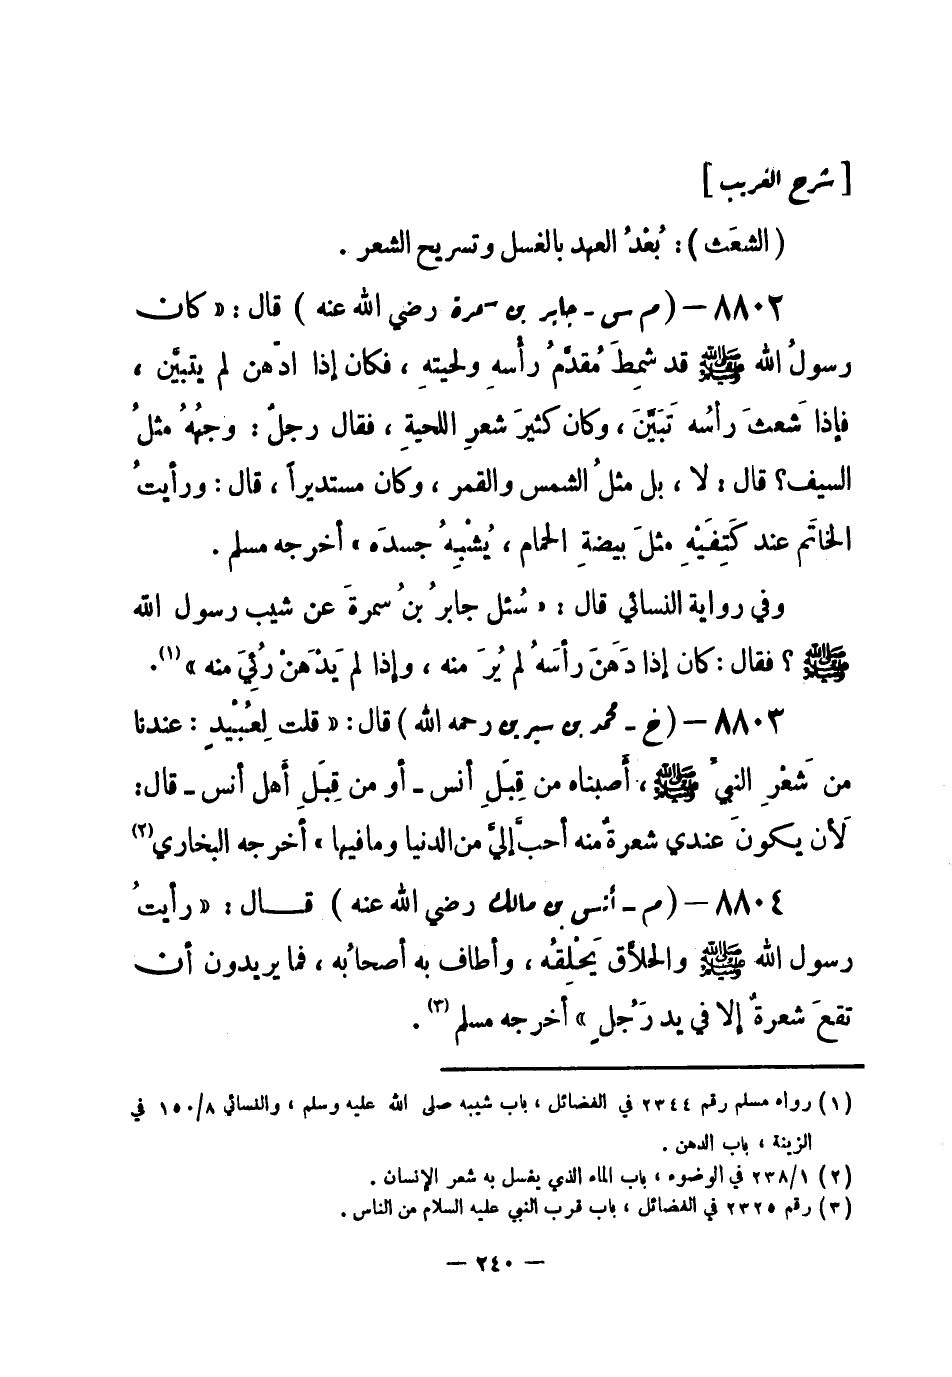 [ شرح الغريب ]
( الشعَث ) : بُعْدُ العهد بالغسل وتسريح الشعر .
٨٨٠٢ – ( م س - جابر بن سمرة رضي الله عنه ) قال : « كان
رسولُ الله ﷺ قد شمِطَ مُقدَّمُ رأسهِ ولحيتهِ ، فكان إذا ادّهن لم يتبيَّن ،
فإذا شَعثَ رأسُه تَبَيَّنَ ، وكان كثيرَ شعرِ اللحيةِ ، فقال رجلٌ : وجهُهُ مثلُ
السيف؟ قال : لا ، بل مثلُ الشمس والقمر ، وكان مستديراً ، قال : ورأيتُ
الخاتَم عند كَتِفَيْهِ مثلَ بيضةِ الحمام ، يُشْبِهُ جسدَه » أخرجه مسلم .
وفي رواية النسائي قال : « سُئل جابرُ بنُ سمرةَ عن شيب رسول الله
ﷺ ؟ فقال : كان إذا دَهَنَ رأسَهُ لم يُرَ منه ، وإذا لم يَدْهَنْ رُئِيَ منه » (١).
٨٨٠٣ – ( خ - محمد بن سيرين رحمه الله ) قال : « قلت لِعُبْيدٍ : عندنا
من شَعْرِ النبيِّ ﷺ ، أَصبناه من قِبَلِ أنس - أو من قِبَلِ أَهل أنس - قال :
لَأن يكونَ عندي شعرةٌ منه أحبُّ إليَّ من الدنيا وما فيها » أخرجه البخاري (٢)
٨٨٠٤ – ( م - أنس بن مالك رضي الله عنه ) قـــال : « رأيتُ
رسول الله ﷺ والحلأق يَحْلِقُه ، وأطاف به أصحابُه ، فما يريدون أن
تقعَ شعرةٌ إلا في يد رَجُلٍ » أخرجه مسلم (٣) .
(١) رواه مسلم رقم ٢٣٤٤ في الفضائل ، باب شيبه صلى الله عليه وسلم ، والنسائي ١٥٠/٨ في
الزينة ، باب الدهن .
(٢) ٢٣٨/١ في الوضوء ، باب الماء الذي يغسل به شعر الإنسان .
(٣) رقم ٢٣٢٥ في الفضائل ، باب قرب النبي عليه السلام من الناس .
– ٢٤٠ –